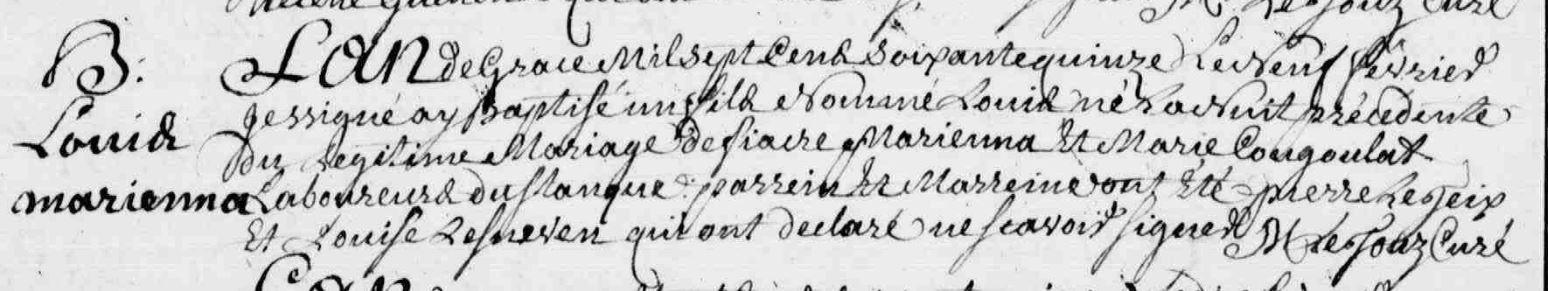 B.
Louis
marienna
L'an de Grace Mil sept Cent soixante quinze Le Neuf fevrier
Je ssigné ay Baptisé un fils Nommé Louis né La Nuit précedente
Du Legitime Mariage de fiacre Marienna Et Marie Cougoulat
Laboureurs du stanque. parrein Et Marreine ont été pierre
Et Louise Lesneven qui ont declaré ne scavoir signer M Curé